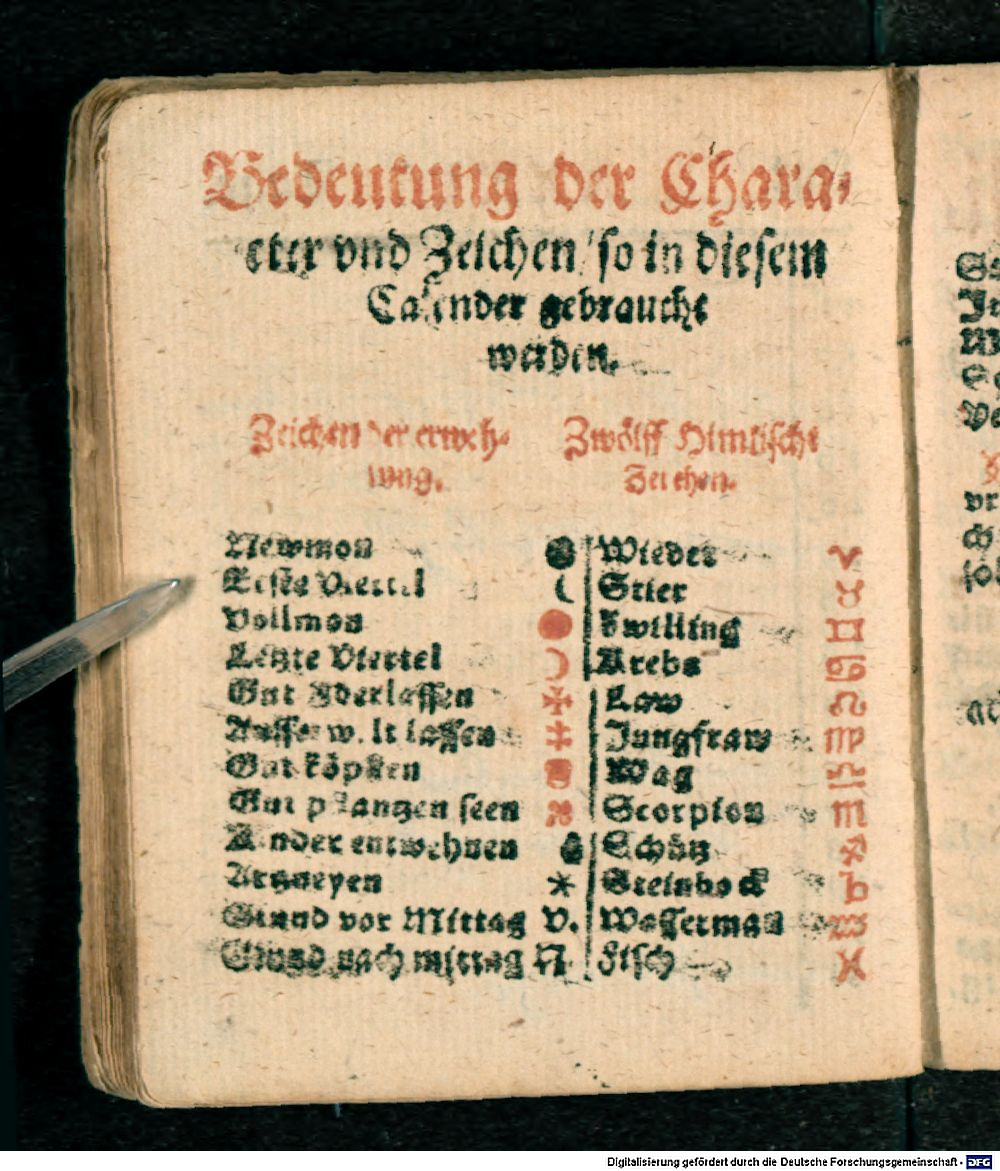 Bedeutung der Chara-
cter vnd Zeichen/ so in diesem
Calender gebraucht
werden.
Zeichen der erweh-
lung.
Newmon ●
Erste Viertel ☾
Vollmon ●
Letzte Viertel ☽
Gut Aderlassen ✠
Gut köpffen
Gut pflantzen seen
Kinder entwehnen
Artzneyen *
Stund vor Mittag V.
Stund nach mittag N.
Zwölff Himlische
Zeichen.
Wieder ♈
Stier ♉
Zwilling ♊
Krebs ♋
Law ♌
Jungfraw ♍
Wag ♎
Scorpion ♏
Schütz ♐
Steinbock ♑
Wasserman ♒
Fisch ♓
Digitalisierung gefördert durch die Deutsche Forschungsgemeinschaft - DFG